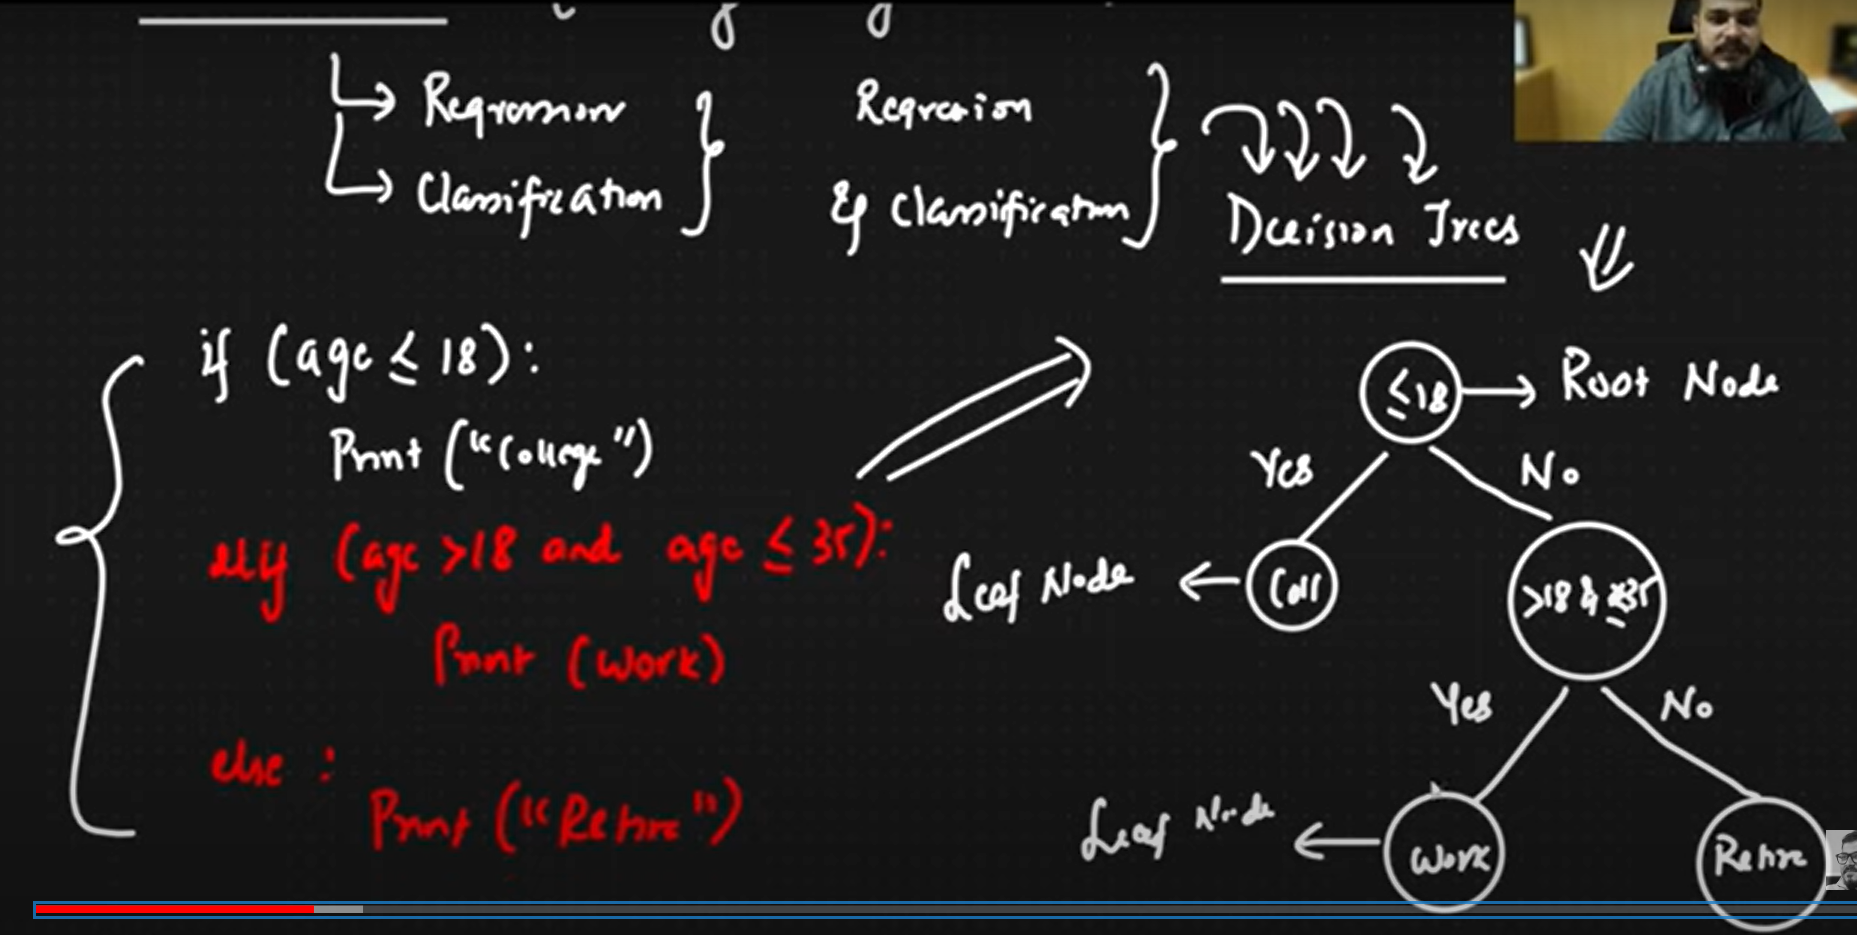 Regression Regression
Classification & Classification Decision Trees
if (age ≤ 18):
Print ("College")
elif (age >18 and age ≤ 35):
Print (Work)
else :
Print ("Retire")
≤18 → Root Node
Yes No
Leaf Node ← Coll >18 & ≤35
Yes No
Leaf Node ← Work Retire